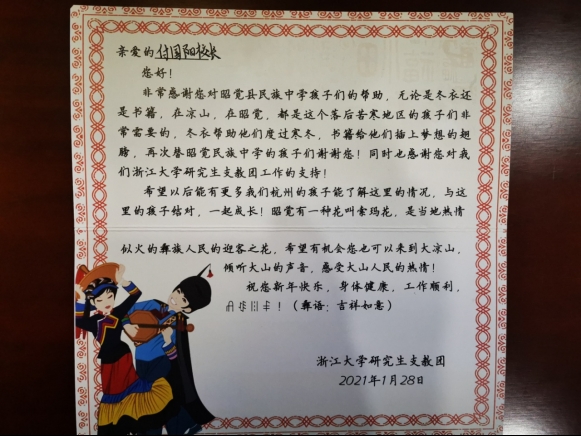 亲爱的付国阳校长
您好！
非常感谢您对昭觉县民族中学孩子们的帮助，无论是冬衣还
是书籍，在凉山，在昭觉，都是这个落后苦寒地区的孩子们非
常需要的，冬衣帮助他们度过寒冬，书籍给他们插上梦想的翅
膀，再次替昭觉民族中学的孩子们谢谢您！同时也感谢您对我
们浙江大学研究生支教团工作的支持！
希望以后能有更多我们杭州的孩子能了解这里的情况，与这
里的孩子结对，一起成长！昭觉有一种花叫索玛花，是当地热情
似火的彝族人民的迎客之花，希望有机会您也可以来到大凉山，
倾听大山的声音，感受大山人民的热情！
祝您新年快乐，身体健康，工作顺利，
！（彝语：吉祥如意）
浙江大学研究生支教团
2021年1月28日